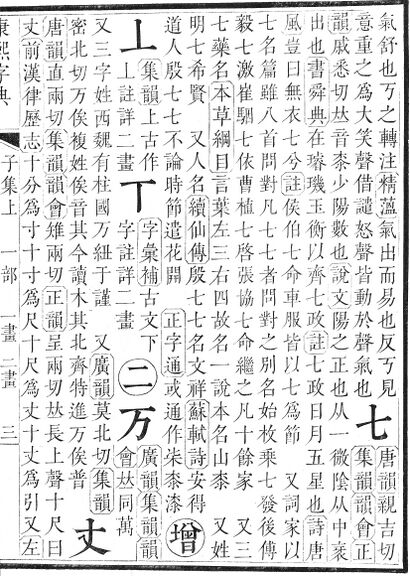 氣舒也丂之轉注精薀氣出而易也反丂見
意重之爲大笑聲借譴怒聲皆動於聲氣也
七
唐韻親吉切
集韻韻會正
韻戚悉切𠀤音桼少陽數也說文陽之正也从一微陰从中衺
出也書舜典在璿璣玉衡以齊七政註七政日月五星也詩唐
風豈曰無衣七兮註侯伯七命車服皆以七爲節 又詞家以
七名篇雖八首問對凡七七者問對之別名始枚乗七發後傳
毅七激崔駰七依曹植七啓張協七命繼之凡十餘家 又三
七藥名本草綱目言葉左三右四故名一說本名山桼 又姓
明七希賢 又人名續仙傳殷七七名文祥蘇軾詩安得
道人殷七七不論時節遣花開 正字通或通作柒桼漆
增
丄
集韻上古作
丄註詳二畫
丅
字彙補古文下
字註詳二畫
二
万
廣韻集韻韻
會𠀤同萬
又三字姓西魏有柱國万紐于謹 又廣韻莫北切集韻
密北切万俟複姓俟音其今讀木其北齊特進万俟普
丈
唐韻直兩切集韻韻會雉兩切正韻呈兩切𠀤長上聲十尺曰
丈前漢律歷志十分爲寸十寸爲尺十尺爲丈十丈爲引又左
康熙字典 子集上 一部 一畫 二畫 三